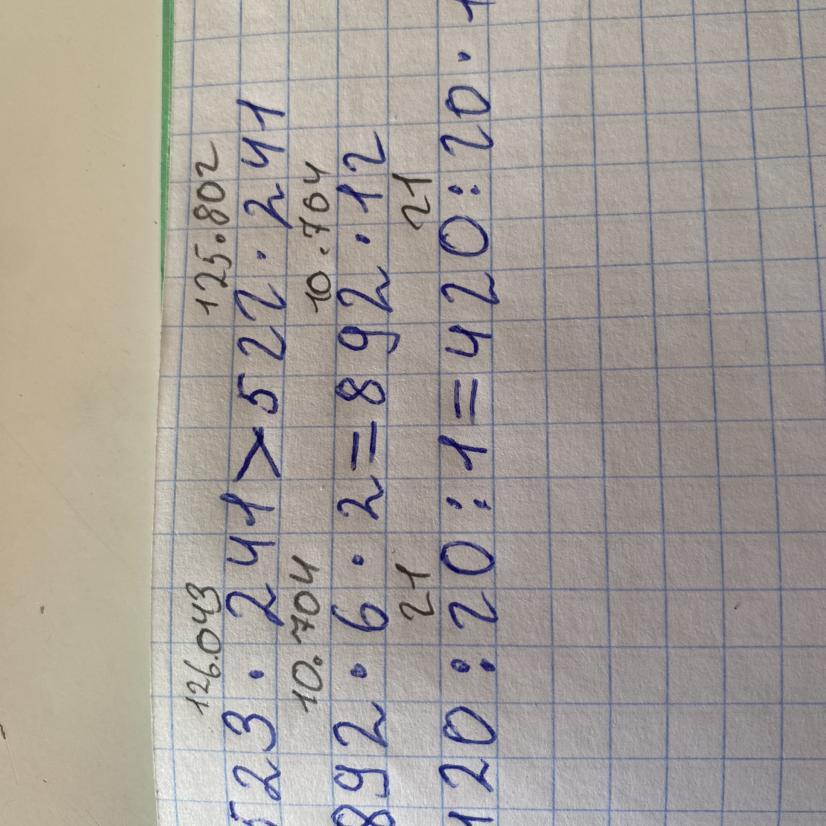 126.043 125.802
523 · 241 > 522 · 241
10.704 10.704
892 · 6 · 2 = 892 · 12
21 21
420 : 20 : 1 = 420 : 20 · 1